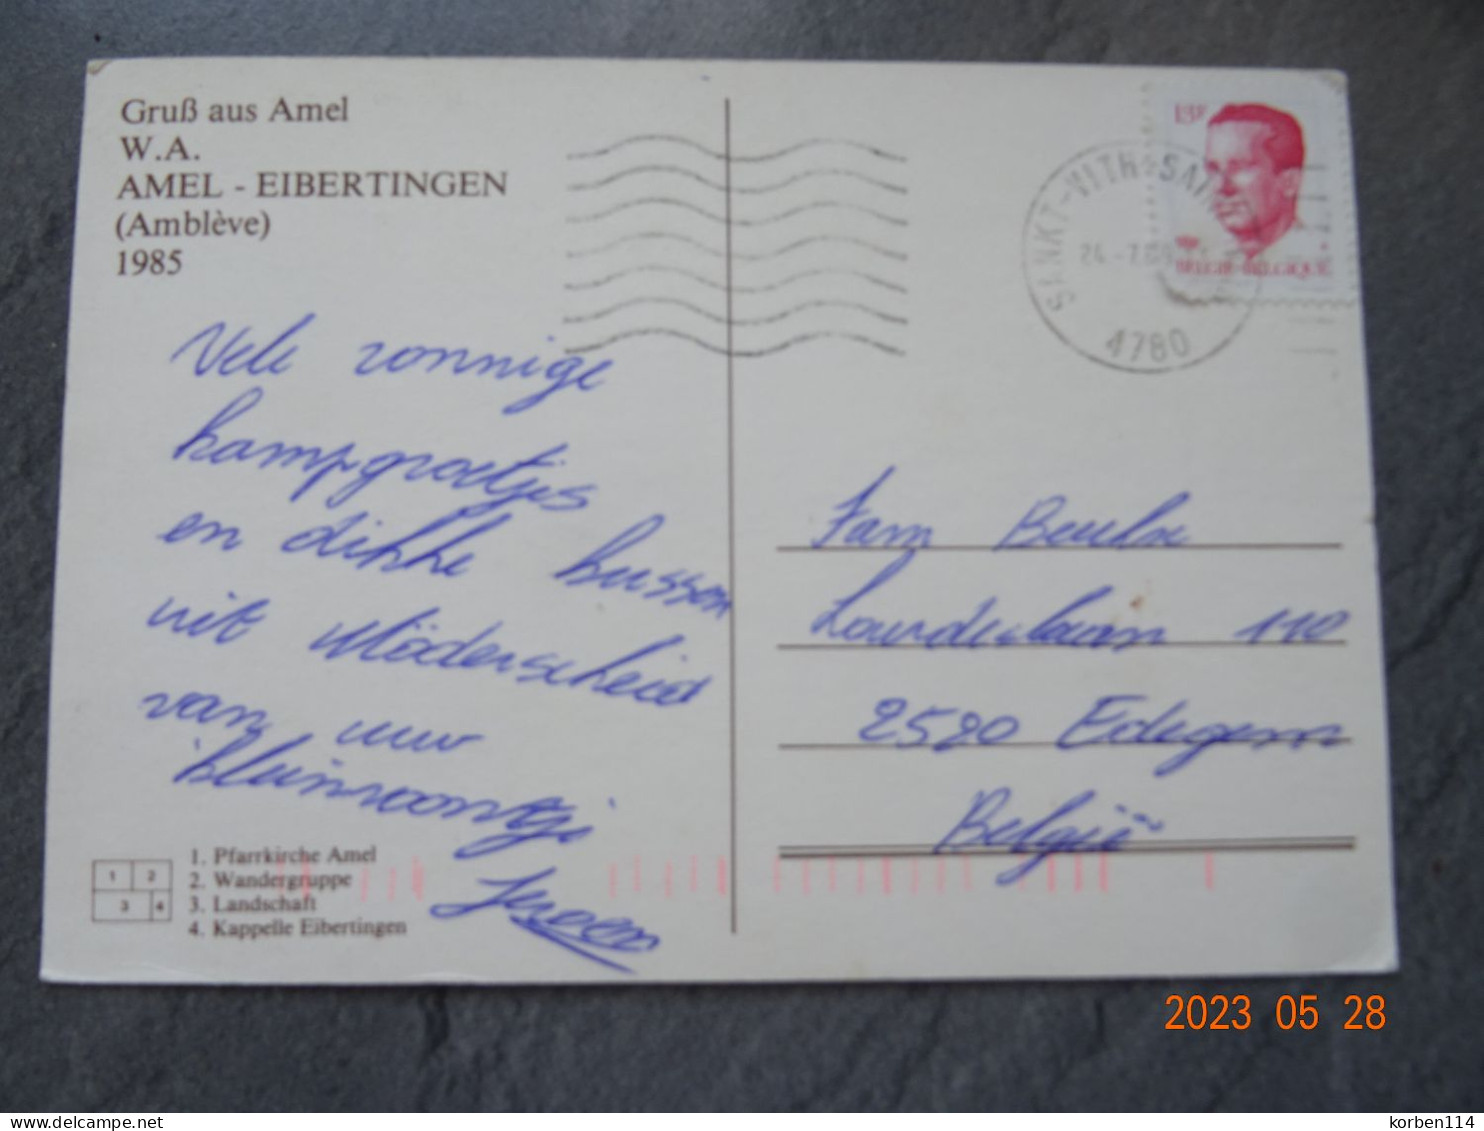 Gruß aus Amel
W.A.
AMEL - EIBERTINGEN
(Amblève)
1985
Vele zonnige
kampgroetjes
en dikke kussen
uit Möderscheid
van uw
kleinzoontje
Jeroen
1. Pfarrkirche Amel
2. Wandergruppe
3. Landschaft
4. Kappelle Eibertingen
1 2
3 4
13F
BELGIE-BELGIQUE
SANKT-VITH
4780
Fam
Lourdeslaan 110
2520 Edegem
België
2023 05 28
delcampe.net
korben114